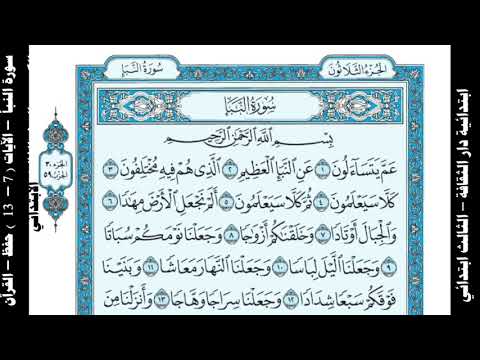 الجُزْءُ الثَّلَاثُونَ
سُورَةُ النَّبَإِ
سُورَةُ النَّبَإِ
بِسْمِ ٱللَّهِ ٱلرَّحْمَٰنِ ٱلرَّحِيمِ
عَمَّ يَتَسَآءَلُونَ ١ عَنِ ٱلنَّبَإِ ٱلْعَظِيمِ ٢ ٱلَّذِى هُمْ فِيهِ مُخْتَلِفُونَ ٣
كَلَّا سَيَعْلَمُونَ ٤ ثُمَّ كَلَّا سَيَعْلَمُونَ ٥ أَلَمْ نَجْعَلِ ٱلْأَرْضَ مِهَٰدًا ٦
وَٱلْجِبَالَ أَوْتَادًا ٧ وَخَلَقْنَٰكُمْ أَزْوَٰجًا ٨ وَجَعَلْنَا نَوْمَكُمْ سُبَاتًا
٩ وَجَعَلْنَا ٱلَّيْلَ لِبَاسًا ١٠ وَجَعَلْنَا ٱلنَّهَارَ مَعَاشًا ١١ وَبَنَيْنَا
فَوْقَكُمْ سَبْعًا شِدَادًا ١٢ وَجَعَلْنَا سِرَاجًا وَهَّاجًا ١٣ وَأَنزَلْنَا مِنَ
الجزء ٣٠
الحزب ٥٩
ابتدائية دار الثقافة – الثالث ابتدائي
سورة النبأ – الآيات ( 7 – 13 ) حفظ – القرآن
الابتدائي